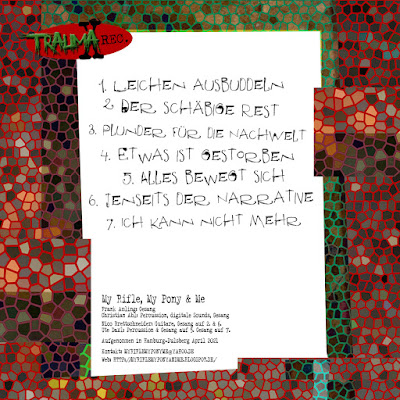 TRAUMA REC.
1. LEICHEN AUSBUDDELN
2 DER SCHÄBIGE REST
3. PLUNDER FÜR DIE NACHWELT
4. ETWAS IST GESTORBEN
5. ALLES BEWEGT SICH
6. JENSEITS DER NARRATIVE
7. ICH KANN NICHT MEHR
My Rifle, My Pony & Me
Frank Gesang
Christian Percussion, digitale Sounds, Gesang
Nico Brettschneider: Guitars, Gesang auf 2. & 6.
Percussion & Gesang auf 3. Gesang auf 7.
Aufgenommen in Hamburg-Dulsberg April 2021
Kontakt: MYRIFLEMYPONYME@YAHOO.DE
Web: HTTP://MYRIFLEMYPONYANDME.BLOGSPOT.DE/